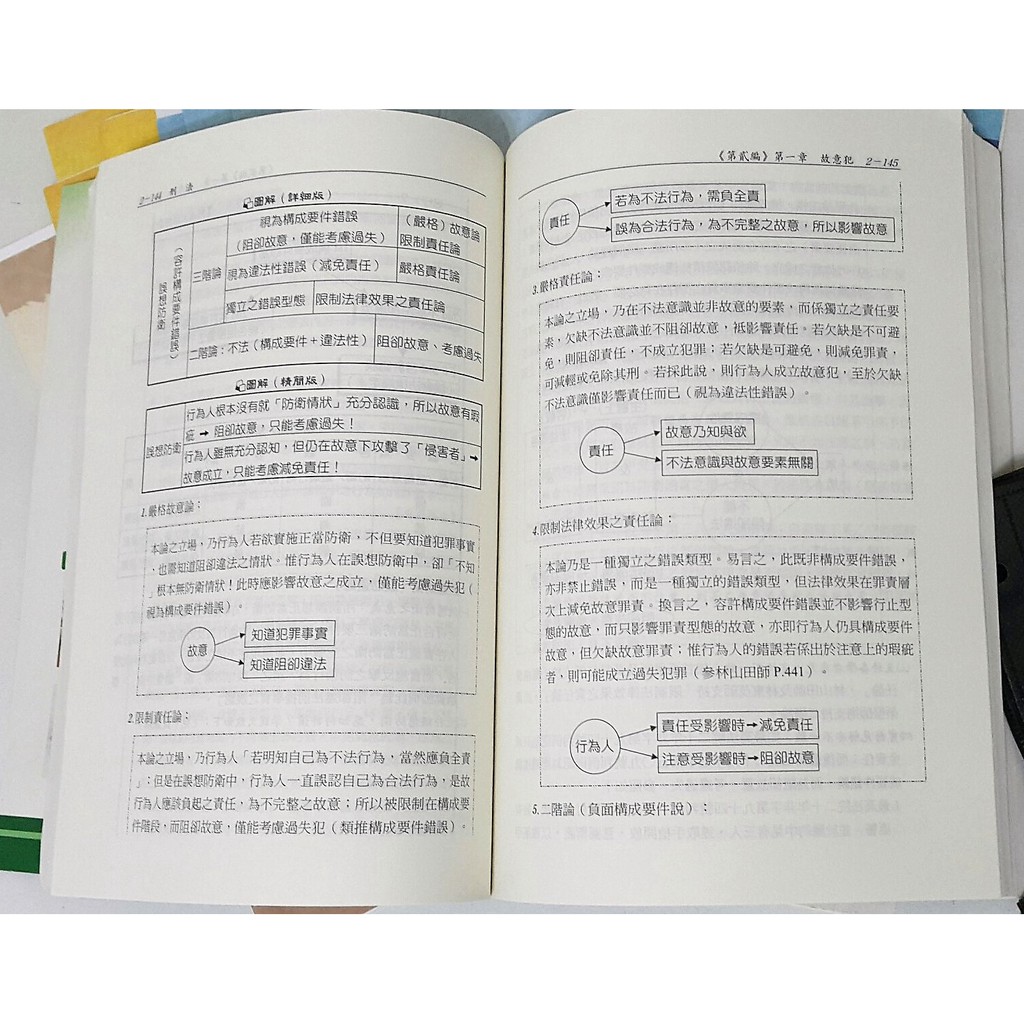 2-144 刑 法
圖解（詳細版）
誤想防衛
（容許構成要件錯誤）
三階論
視為構成要件錯誤
（阻卻故意，僅能考慮過失）
（嚴格）故意論
限制責任論
視為違法性錯誤（減免責任）
嚴格責任論
獨立之錯誤型態
限制法律效果之責任論
二階論：不法（構成要件＋違法性）
阻卻故意、考慮過失
圖解（精簡版）
誤想防衛
行為人根本沒有就「防衛情狀」充分認識，所以故意有瑕
疵➡阻卻故意，只能考慮過失！
行為人雖無充分認知，但仍在故意下攻擊了「侵害者」➡
故意成立，只能考慮減免責任！
1.嚴格故意論：
本論之立場，乃行為人若欲實施正當防衛，不但要知道犯罪事實
、也需知道阻卻違法之情狀。惟行為人在誤想防衛中，卻「不知
」根本無防衛情狀！此時應影響故意之成立，僅能考慮過失犯（
視為構成要件錯誤）。
故意
知道犯罪事實
知道阻卻違法
2.限制責任論：
本論之立場，乃行為人「若明知自己為不法行為，當然應負全責
」；但是在誤想防衛中，行為人一直誤認自己為合法行為，是故
行為人應該負起之責任，為不完整之故意；所以被限制在構成要
件階段，而阻卻故意，僅能考慮過失犯（類推構成要件錯誤）。
《第貳編》第一章 故意犯 2-145
責任
若為不法行為，需負全責
誤為合法行為，為不完整之故意，所以影響故意
3.嚴格責任論：
本論之立場，乃在不法意識並非故意的要素，而係獨立之責任要
素，欠缺不法意識並不阻卻故意，祗影響責任。若欠缺是不可避
免，則阻卻責任，不成立犯罪；若欠缺是可避免，則減免罪責，
可減輕或免除其刑。若採此說，則行為人成立故意犯，至於欠缺
不法意識僅影響責任而已（視為違法性錯誤）。
責任
故意乃知與欲
不法意識與故意要素無關
4.限制法律效果之責任論：
本論乃是一種獨立之錯誤類型。易言之，此既非構成要件錯誤，
亦非禁止錯誤，而是一種獨立的錯誤類型，但法律效果在罪責層
次上減免故意罪責。換言之，容許構成要件錯誤並不影響行止型
態的故意，而只影響罪責型態的故意，亦即行為人仍具構成要件
故意，但欠缺故意罪責；惟行為人的錯誤若係出於注意上的瑕疵
者，則可能成立過失犯罪（參林山田師 P.441）。
行為人
責任受影響時➡減免責任
注意受影響時➡阻卻故意
5.二階論（負面構成要件說）：